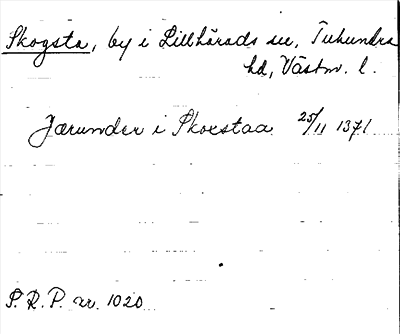 Skogsta, by i Lillhärads sn, Tuhundra
hd, Västm. l.
Jærunder i Skoxstaa 25/11 1371
S. R. P. nr. 1020